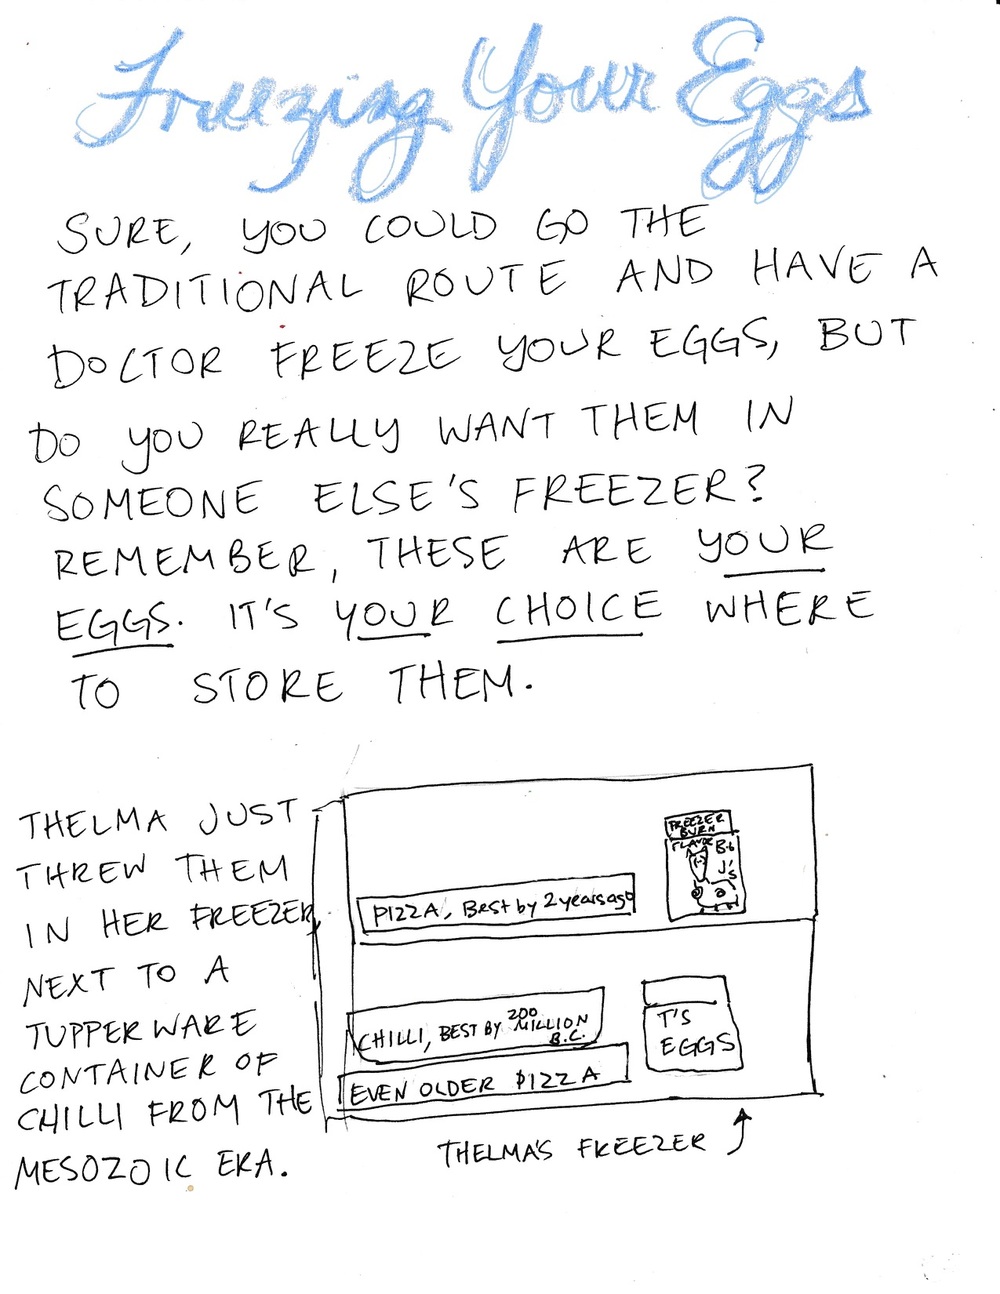 Freezing Your Eggs
SURE, YOU COULD GO THE
TRADITIONAL ROUTE AND HAVE A
DOCTOR FREEZE YOUR EGGS, BUT
DO YOU REALLY WANT THEM IN
SOMEONE ELSE'S FREEZER?
REMEMBER, THESE ARE YOUR
EGGS. IT'S YOUR CHOICE WHERE
TO STORE THEM.
THELMA JUST
THREW THEM
IN HER FREEZER,
NEXT TO A
TUPPERWARE
CONTAINER OF
CHILLI FROM THE
MESOZOIC ERA.
FREEZER
BURN
FLAVOR
B+
J'S
PIZZA, BEST by 2 years ago
CHILLI, BEST BY 200 MILLION
B.C.
T'S
EGGS
EVEN OLDER PIZZA
THELMA'S FREEZER